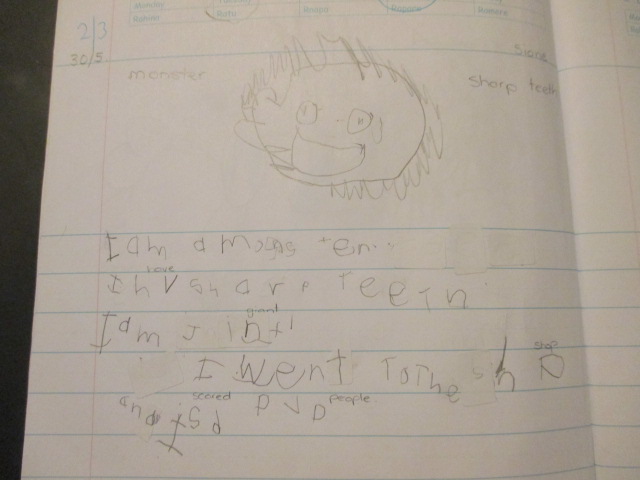 Monday
Rahina
Ratu
Rāapa
Rapare
Ramere
2/3
30/5
Sione
monster
sharp teeth
I am a mosgs ten..
have
I hv sharp Teeth
giant
I am J int
shop
I went To The sh P
scared people
and